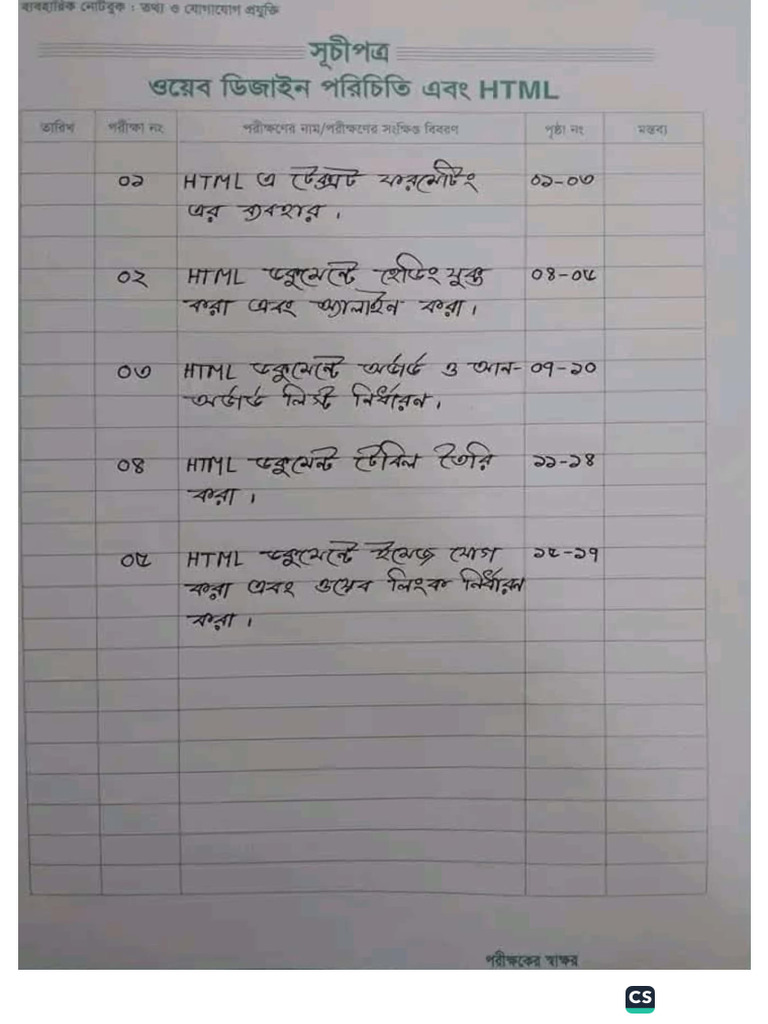 ব্যবহারিক নোটবুক : তথ্য ও যোগাযোগ প্রযুক্তি
সূচীপত্র
ওয়েব ডিজাইন পরিচিতি এবং HTML
তারিখ পরীক্ষা নং পরীক্ষণের নাম/পরীক্ষণের সংক্ষিপ্ত বিবরণ পৃষ্ঠা নং মন্তব্য
০১ HTML এ টেক্সট ফরমেটিং ০১-০৩
এর ব্যবহার।
০২ HTML ডকুমেন্টে হেডিং যুক্ত ০৪-০৬
করা এবং অ্যালাইন করা।
০৩ HTML ডকুমেন্টে অর্ডার্ড ও আন- ০৭-১০
অর্ডার্ড লিস্ট নির্ধারন।
০৪ HTML ডকুমেন্ট টেবিল তৈরি ১১-১৪
করা।
০৫ HTML ডকুমেন্টে ইমেজ যোগ ১৫-১৭
করা এবং ওয়েব লিংক নির্ধারন
করা।
পরীক্ষকের স্বাক্ষর
CS